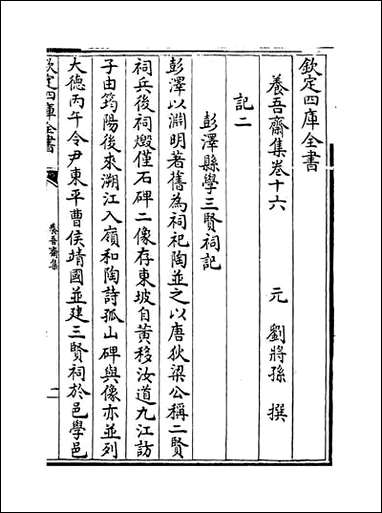 欽定四庫全書
養吾齋集卷十六
元　劉將孫　撰
記二
彭澤縣學三賢祠記
彭澤以淵明著舊為祠祀陶並之以唐狄梁公稱二賢
祠兵後祠燬僅石碑二像存東坡自黃移汝道九江訪
子由筠陽後來溯江入嶺和陶詩孤山碑與像亦並列
大德丙午令尹東平曹侯靖國並建三賢祠於邑學邑
欽定四庫全書
養吾齋集
一